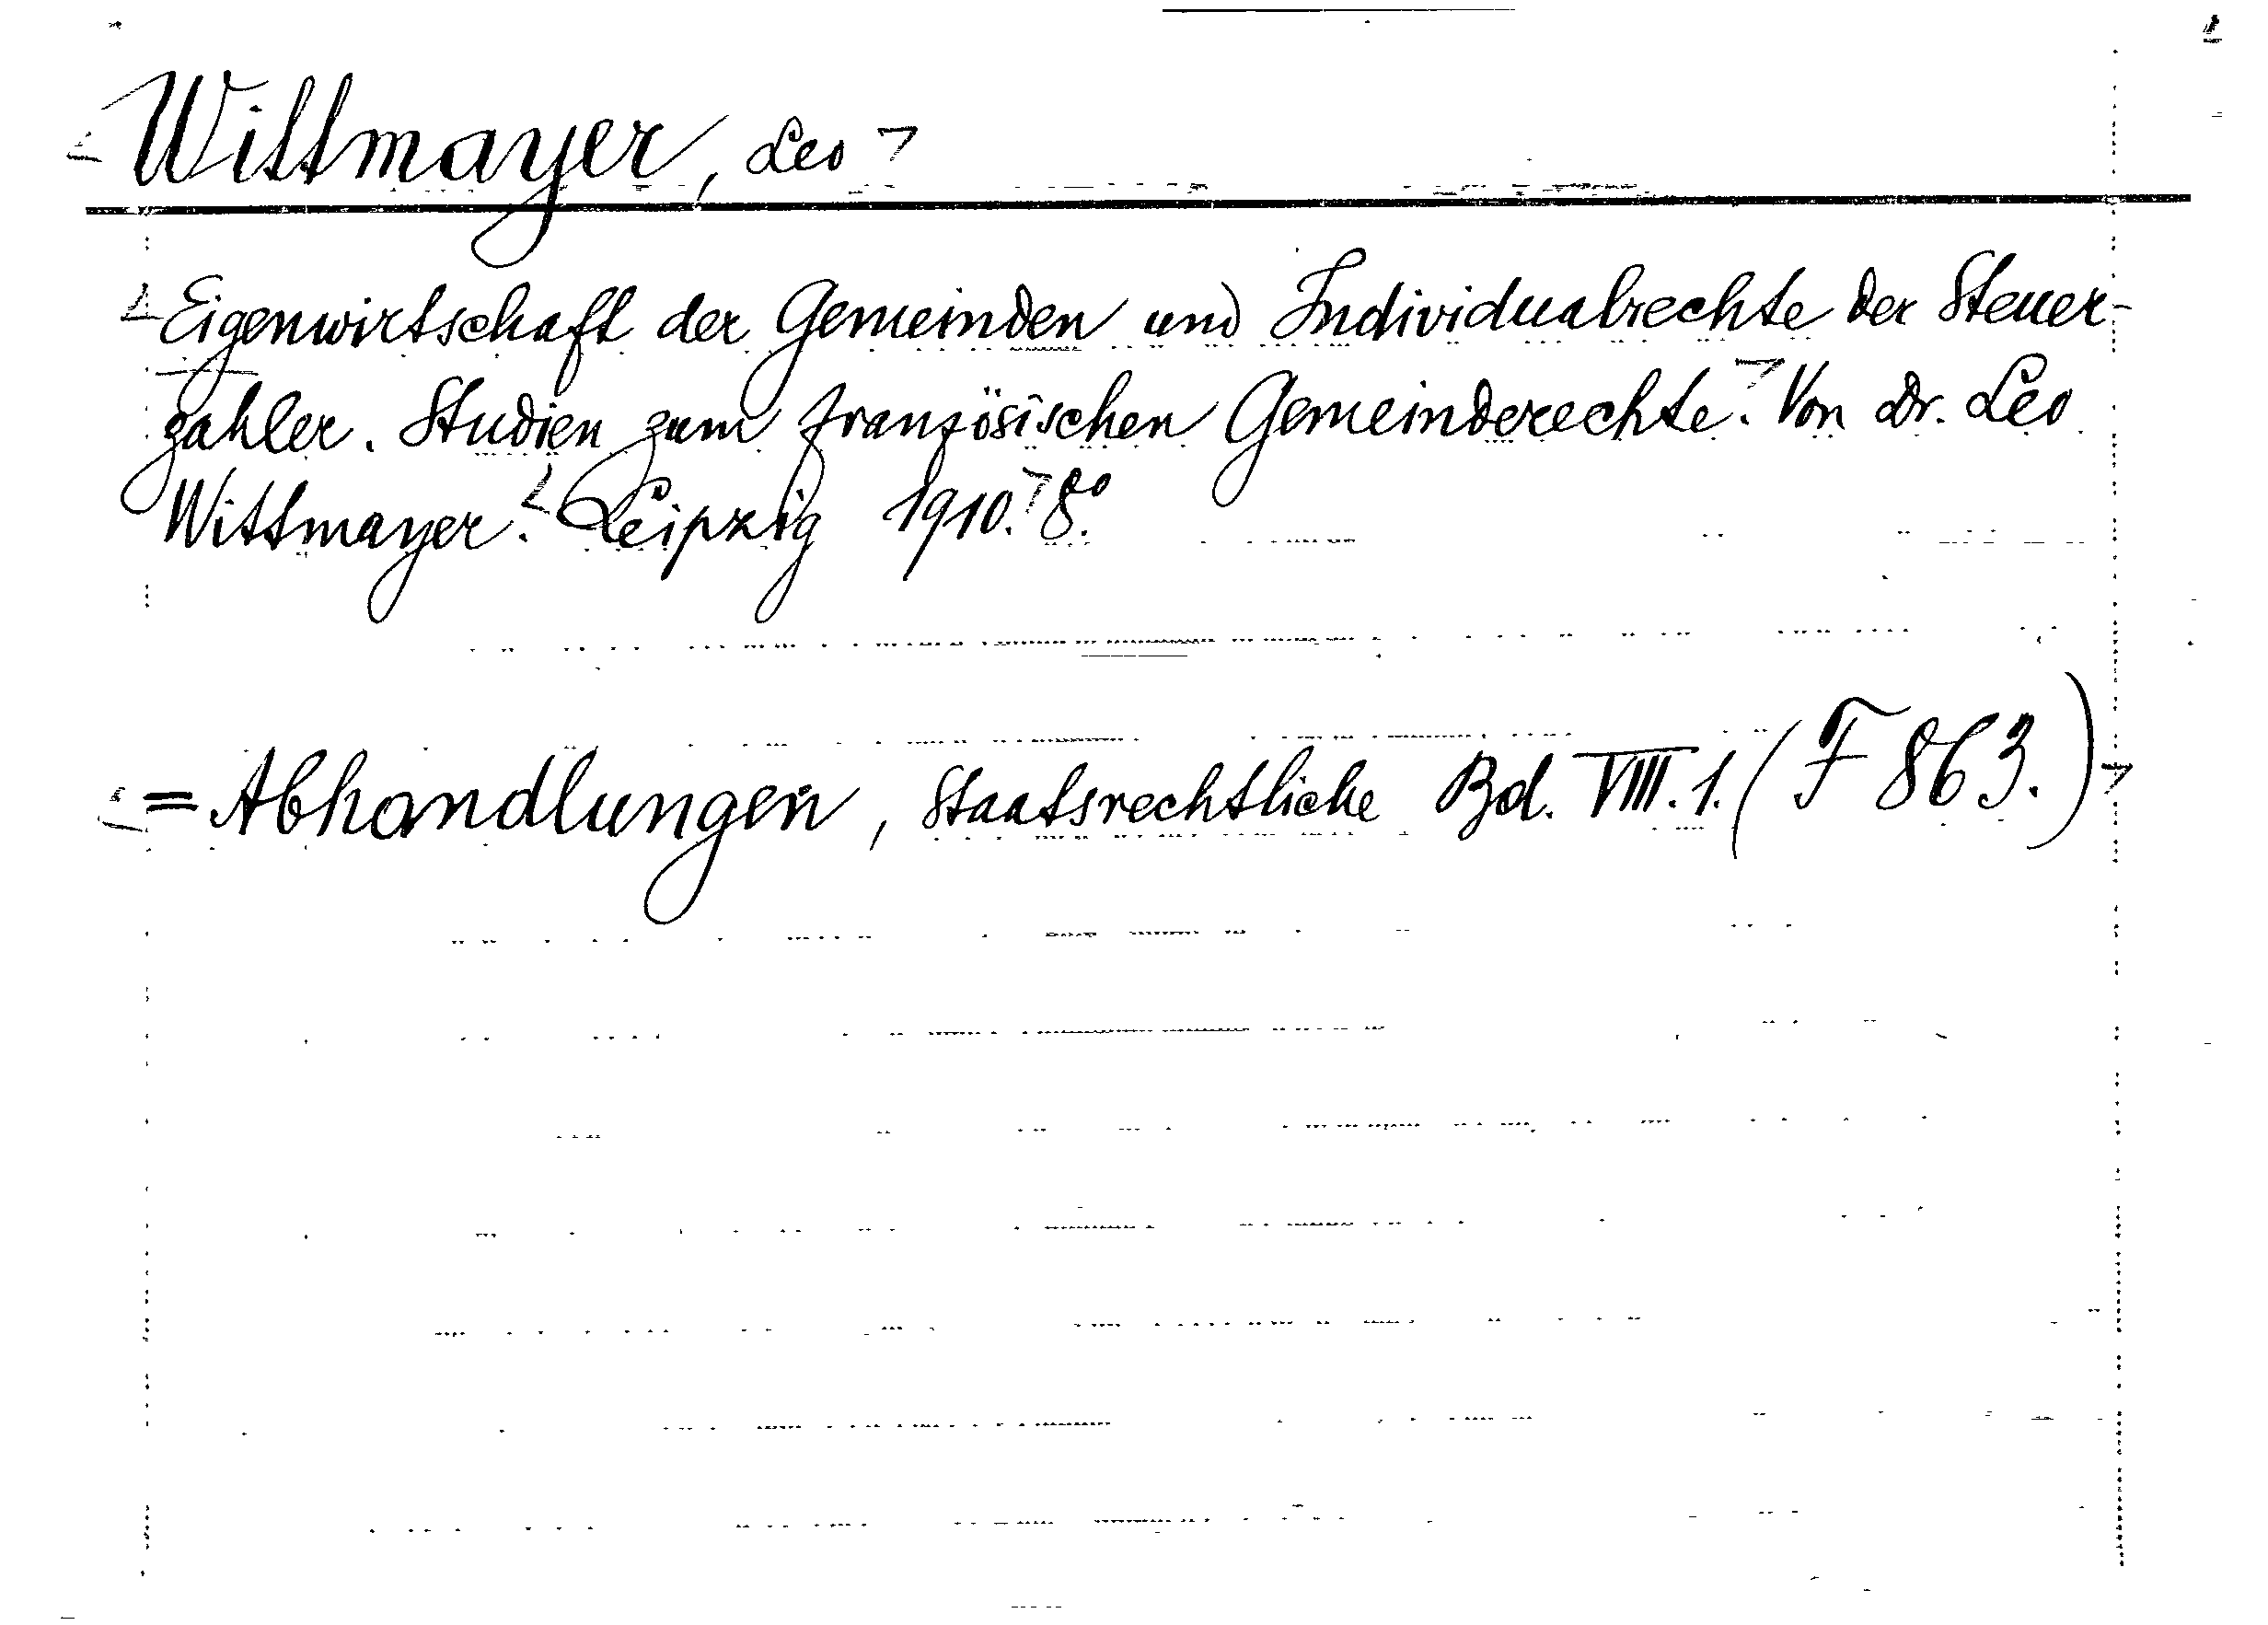 Wittmayer, Leo
Eigenwirtschaft der Gemeinden und Individualrechte der Steuer-
zahler. Studien zum französischen Gemeinderechte. Von Dr. Leo
Wittmayer. Leipzig 1910. 8º.
= Abhandlungen, Staatsrechtliche Bd. VIII. 1. (F 863.)